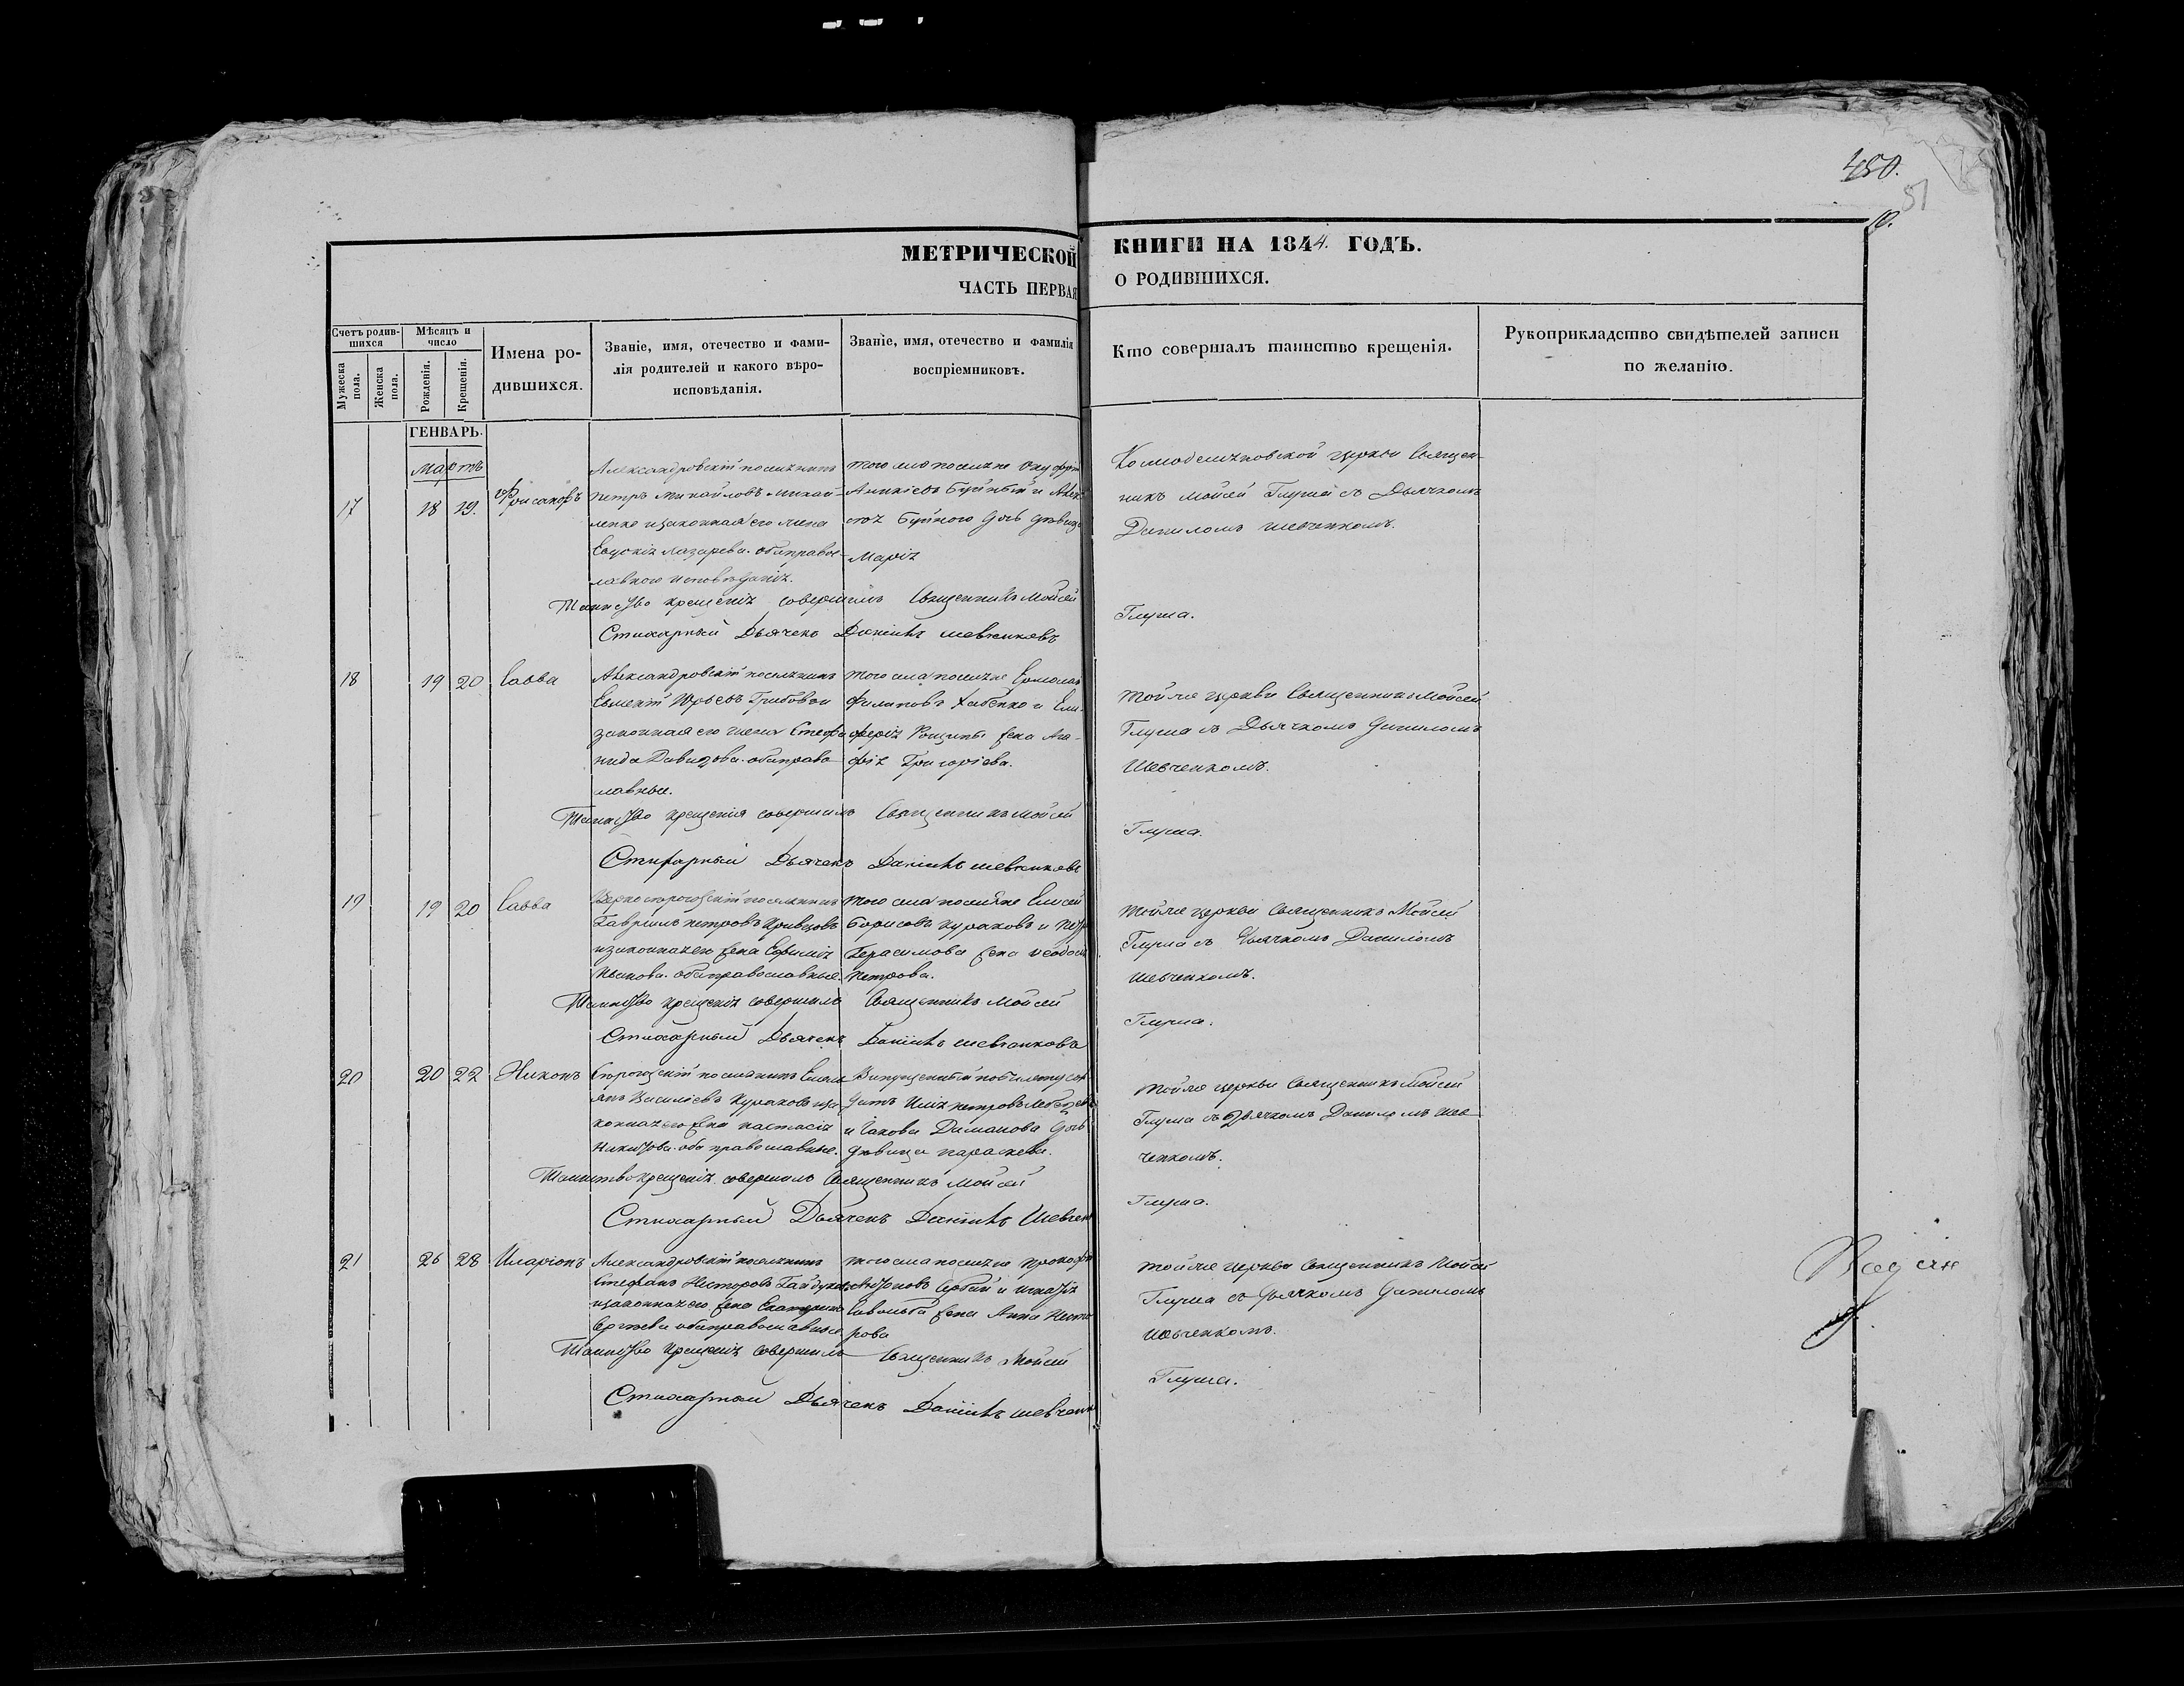 450.
51
10.
МЕТРИЧЕСКОЙ КНИГИ НА 1844. ГОДЪ.
ЧАСТЬ ПЕРВАЯ О РОДИВШИХСЯ.
Счетъ родив-
шихся
Мужеска
пола.
Женска
пола.
Мѣсяцъ и
число
Рожденія.
Крещенія.
Имена ро-
дившихся.
Званіе, имя, отечество и фами-
лія родителей и какого вѣро-
исповѣданія.
Званіе, имя, отечество и фамилія
воспріемниковъ.
Кто совершалъ таинство крещенія.
Рукоприкладство свидѣтелей записи
по желанію.
ГЕНВАРЬ.
Мартъ
17
18
19.
Александровскій поселянинъ
Петръ Михайловъ Михай-
ленко и законная его жена
Евдокія Лазарева. оба право-
славного исповѣданія.
того села поселяне
дочь дѣвица
Марія
церкви Священ-
никъ Мойсей Глуша съ Дьячкомъ
Даниломъ Шевченкомъ.
Таинство крещенія совершилъ Священникъ Мойсей Глуша.
Стихарный Дьячекъ Даніилъ Шевченковъ
18
19
20
Савва
Александровскій поселянинъ
законная его жена Стефа-
нида Давидова. оба право-
славные.
того села поселяне Ермолай
Филиповъ Хабенко и Ели-
жена Ага-
фія Григоріева.
Тойже церкви Священникъ Мойсей
Глуша съ Дьячкомъ Даниломъ
Шевченкомъ.
Таинство крещенія совершилъ Священникъ Мойсей Глуша.
Стихарный Дьячекъ Даніилъ Шевченковъ
19
19
20
Савва
поселянинъ
Гавріилъ Петровъ Кривцовъ
и законная его жена Евфимія
Иванова. оба православные.
того села поселяне Елисей
Борисовъ Кураковъ и
Герасимова жена Феодосія
Петрова.
Тойже церкви Священникъ Мойсей
Глуша съ Дьячкомъ Даниломъ
Шевченкомъ.
Таинство крещенія совершилъ Священникъ Мойсей Глуша.
Стихарный Дьячекъ Даніилъ Шевченковъ
20
20
22
Никонъ
поселянинъ
Василіевъ Кураковъ и за-
конная его жена Настасія
Никитова. оба православные.
Илія Петровъ
и Іакова Диманова дочь
дѣвица Параскева.
Тойже церкви Священникъ Мойсей
Глуша съ Дьячкомъ Даниломъ Шев-
ченкомъ.
Таинство крещенія совершилъ Священникъ Мойсей Глуша.
Стихарный Дьячекъ Даніилъ Шевченк
21
26
28
Иларіонъ
Александровскій поселянинъ
Стефанъ Несторовъ
и законная его жена Екатерина
Сергѣева оба православные.
того села поселяне
жена Анна Несто-
рова
Тойже церкви Священникъ Мойсей
Глуша съ Дьячкомъ Даниломъ
Шевченкомъ.
Таинство крещенія совершилъ Священникъ Мойсей Глуша.
Стихарный Дьячекъ Даніилъ Шевченк